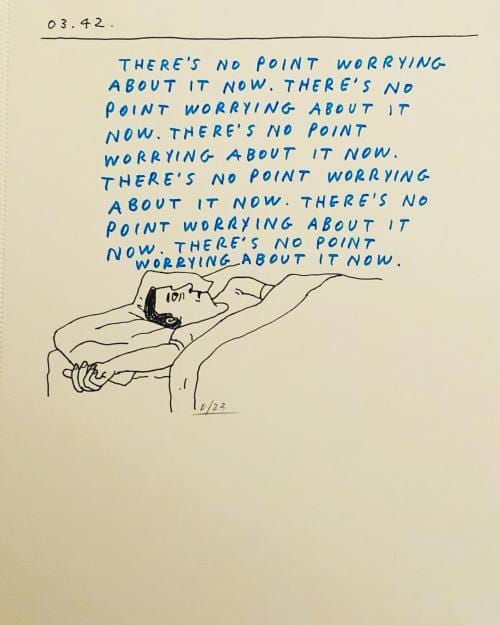 03.42.
THERE'S NO POINT WORRYING
ABOUT IT NOW. THERE'S NO
POINT WORRYING ABOUT IT
NOW. THERE'S NO POINT
WORRYING ABOUT IT NOW.
THERE'S NO POINT WORRYING
ABOUT IT NOW. THERE'S NO
POINT WORRYING ABOUT IT
NOW. THERE'S NO POINT
WORRYING ABOUT IT NOW.
D/23